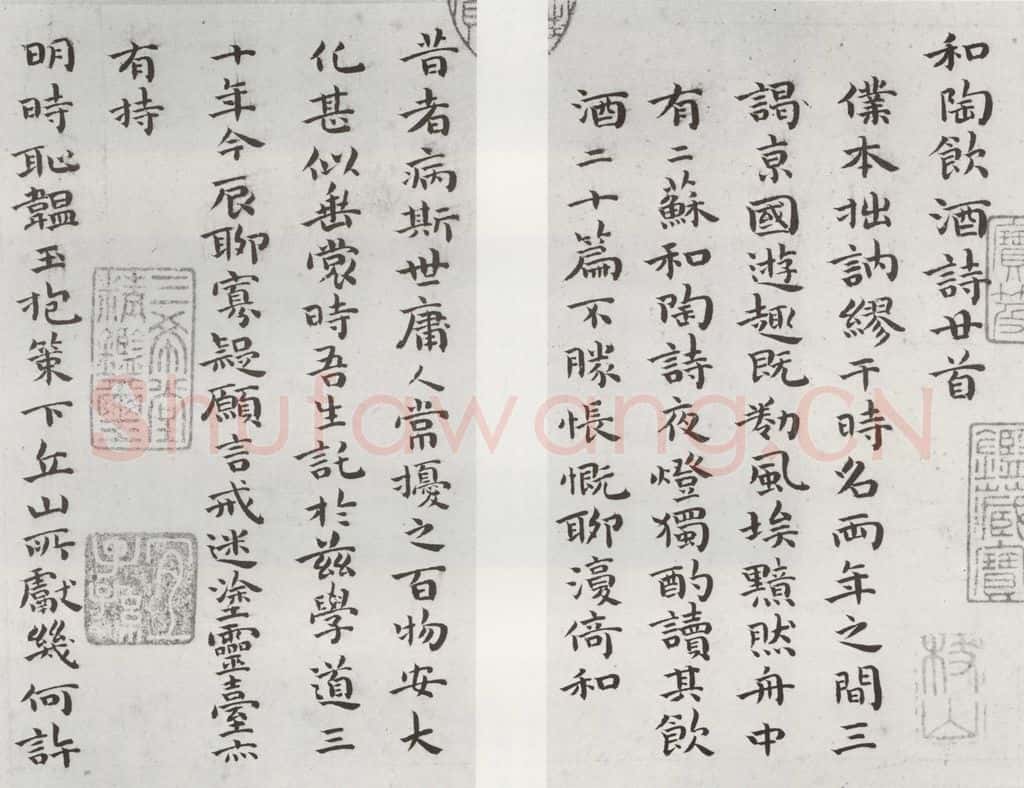 和陶飲酒詩廿首
僕本拙訥繆干時名兩年之間三
謁京國遊趣既勌風埃黯然舟中
有二蘇和陶詩夜燈獨酌讀其飲
酒二十篇不勝悵慨聊倚和
昔者病斯世庸人當擾之百物安大
化甚似垂裳時吾生託於茲學道三
十年今辰聊寡疑願言戒迷塗靈臺亦
有持
明時恥韞玉抱策下丘山所獻幾何許
三希堂精鑑璽
宜子孫
鑑藏寶
枝山
Shufawang.CN